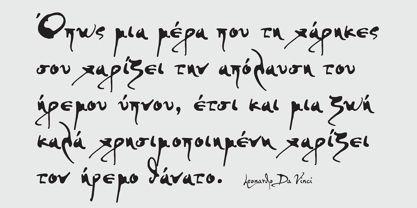 Όπως μια μέρα που τη χάρηκες
σου χαρίζει την απόλαυση του
ήρεμου ύπνου, έτσι και μια ζωή
καλά χρησιμοποιημένη χαρίζει
τον ήρεμο θάνατο. Leonardo Da Vinci